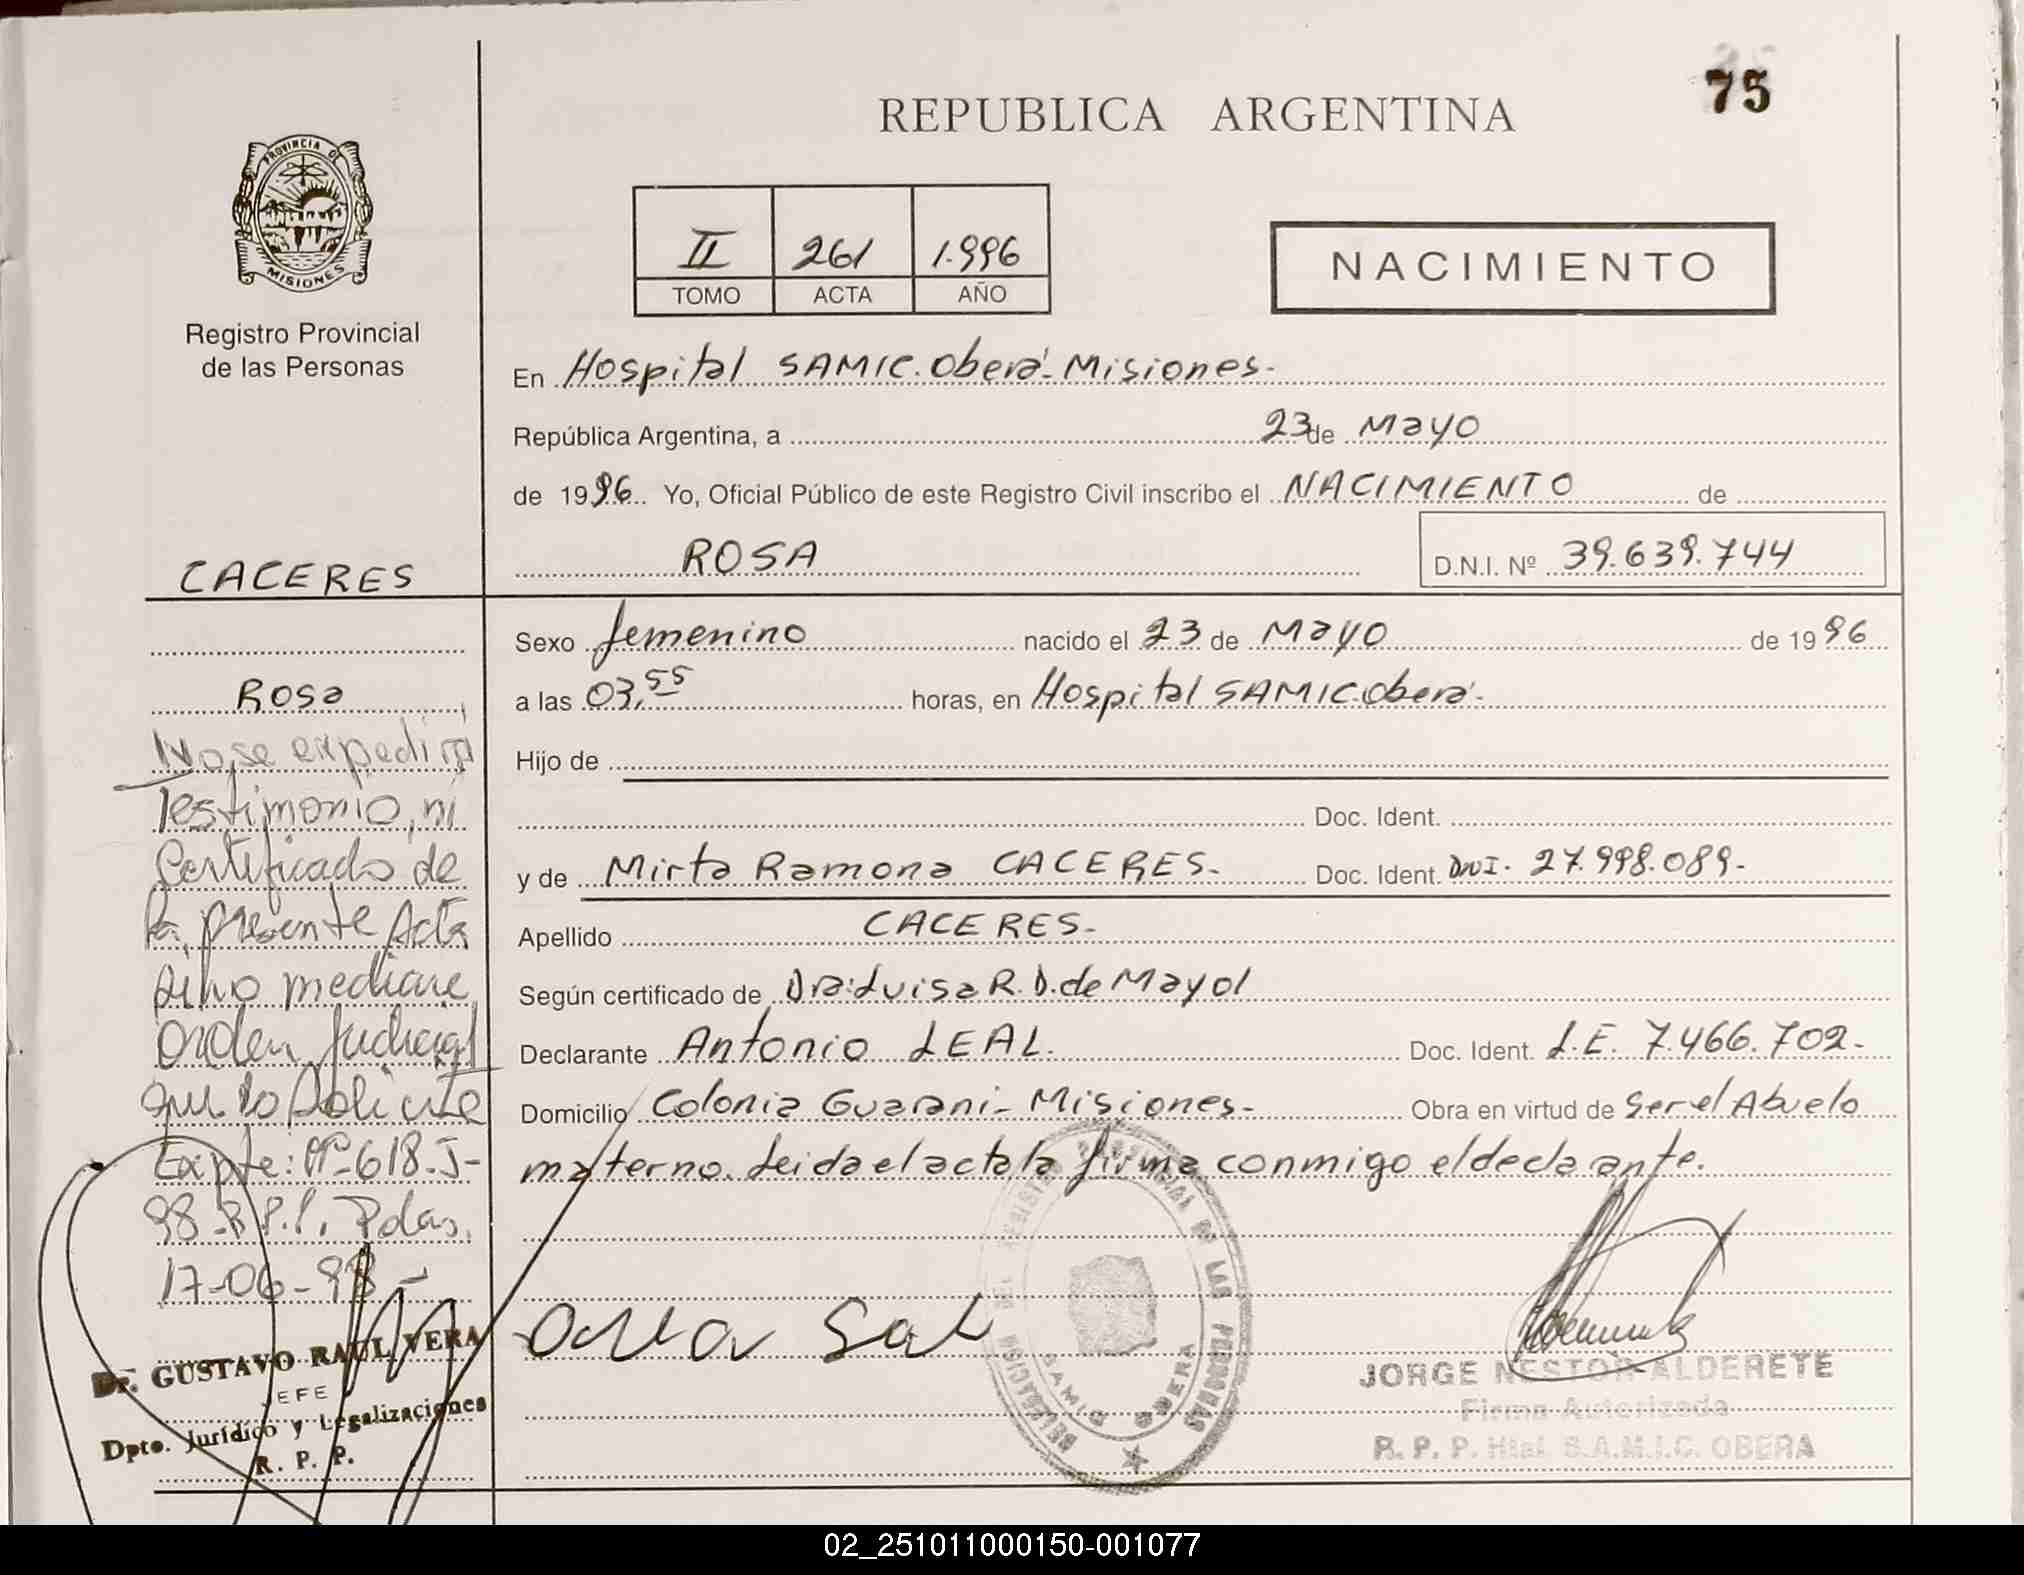 75
REPUBLICA ARGENTINA
PROVINCIA DE
MISIONES
Registro Provincial
de las Personas
II 261 1.996
TOMO ACTA AÑO
NACIMIENTO
En Hospital SAMIC. Oberá- Misiones-
República Argentina, a 23 de Mayo
de 1996 Yo, Oficial Público de este Registro Civil inscribo el NACIMIENTO de
ROSA D.N.I. Nº 39.639.744
CACERES
Rosa
No se expedira
Testimonio, ni
Certificado de
la presente Acta
sino mediante
Orden Judicial
que lo Solicite
Expte: Nº-618-J-
98-R.P.P. Pdas.
17-06-98-
Dr. GUSTAVO RAUL VERA
JEFE
Dpto. Jurídico y Legalizaciones
R. P. P.
Sexo femenino nacido el 23 de Mayo de 1996
a las 03,55 horas, en Hospital SAMIC. Oberá.
Hijo de
Doc. Ident.
y de Mirta Ramona CACERES- Doc. Ident. DNI. 27.998.089-
Apellido CACERES-
Según certificado de Dra: Luisa R. D. de Mayol
Declarante Antonio LEAL. Doc. Ident. L.E. 7.466.702-
Domicilio Colonia Guarani- Misiones- Obra en virtud de Ser el Abuelo
materno. Leida el acta la firma conmigo el declarante.
DELEGACION DEL REGISTRO PROVINCIAL DE LAS PERSONAS
SAMIC OBERA
JORGE NESTOR ALDERETE
Firma Autorizada
R. P. P. Htal. S.A.M.I.C. OBERA
02_251011000150-001077